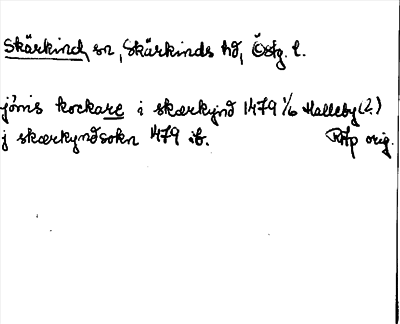 Skärkind, sn, Skärkinds hd, Östg. l.
jönis kockare i skærkynd 1479 1/6 Halleby (?)
j skærkyndsokn 1479 ib. RAp orig.